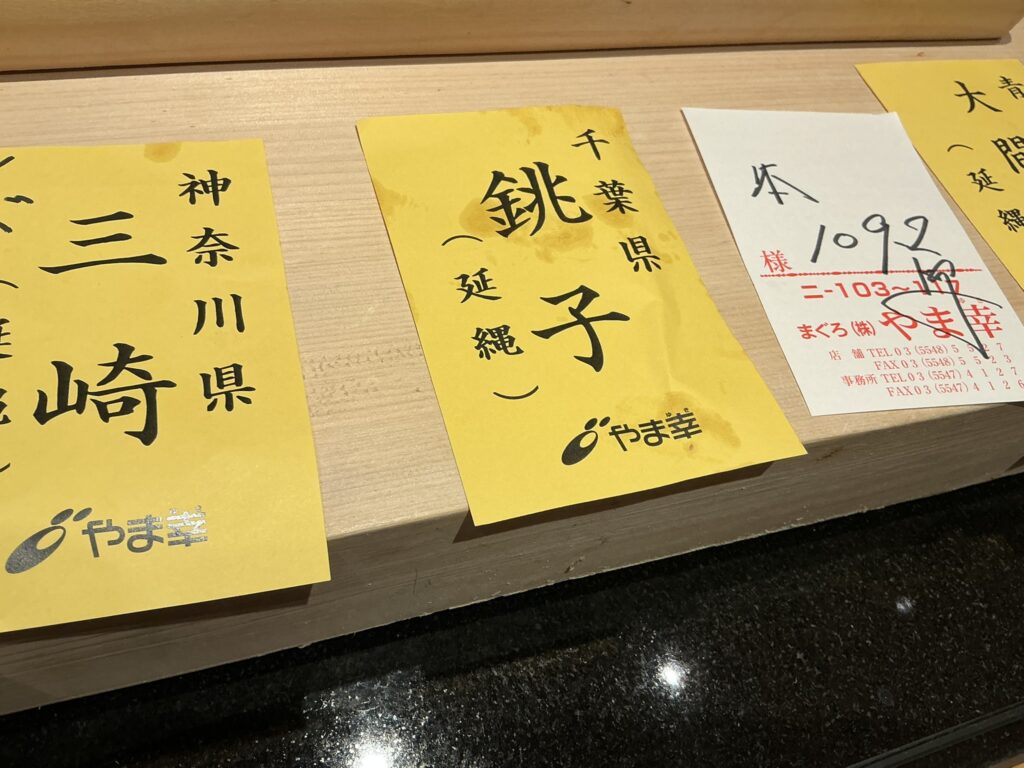 神奈川県
三崎
やま幸
千葉県
銚子
(延縄)
やま幸
本
1092
様
ニ-103~117
まぐろ(株)やま幸
店舗 TEL03(5548)5527
FAX03(5548)5523
事務所 TEL03(5547)4127
FAX03(5547)4126
青
大間
(延縄